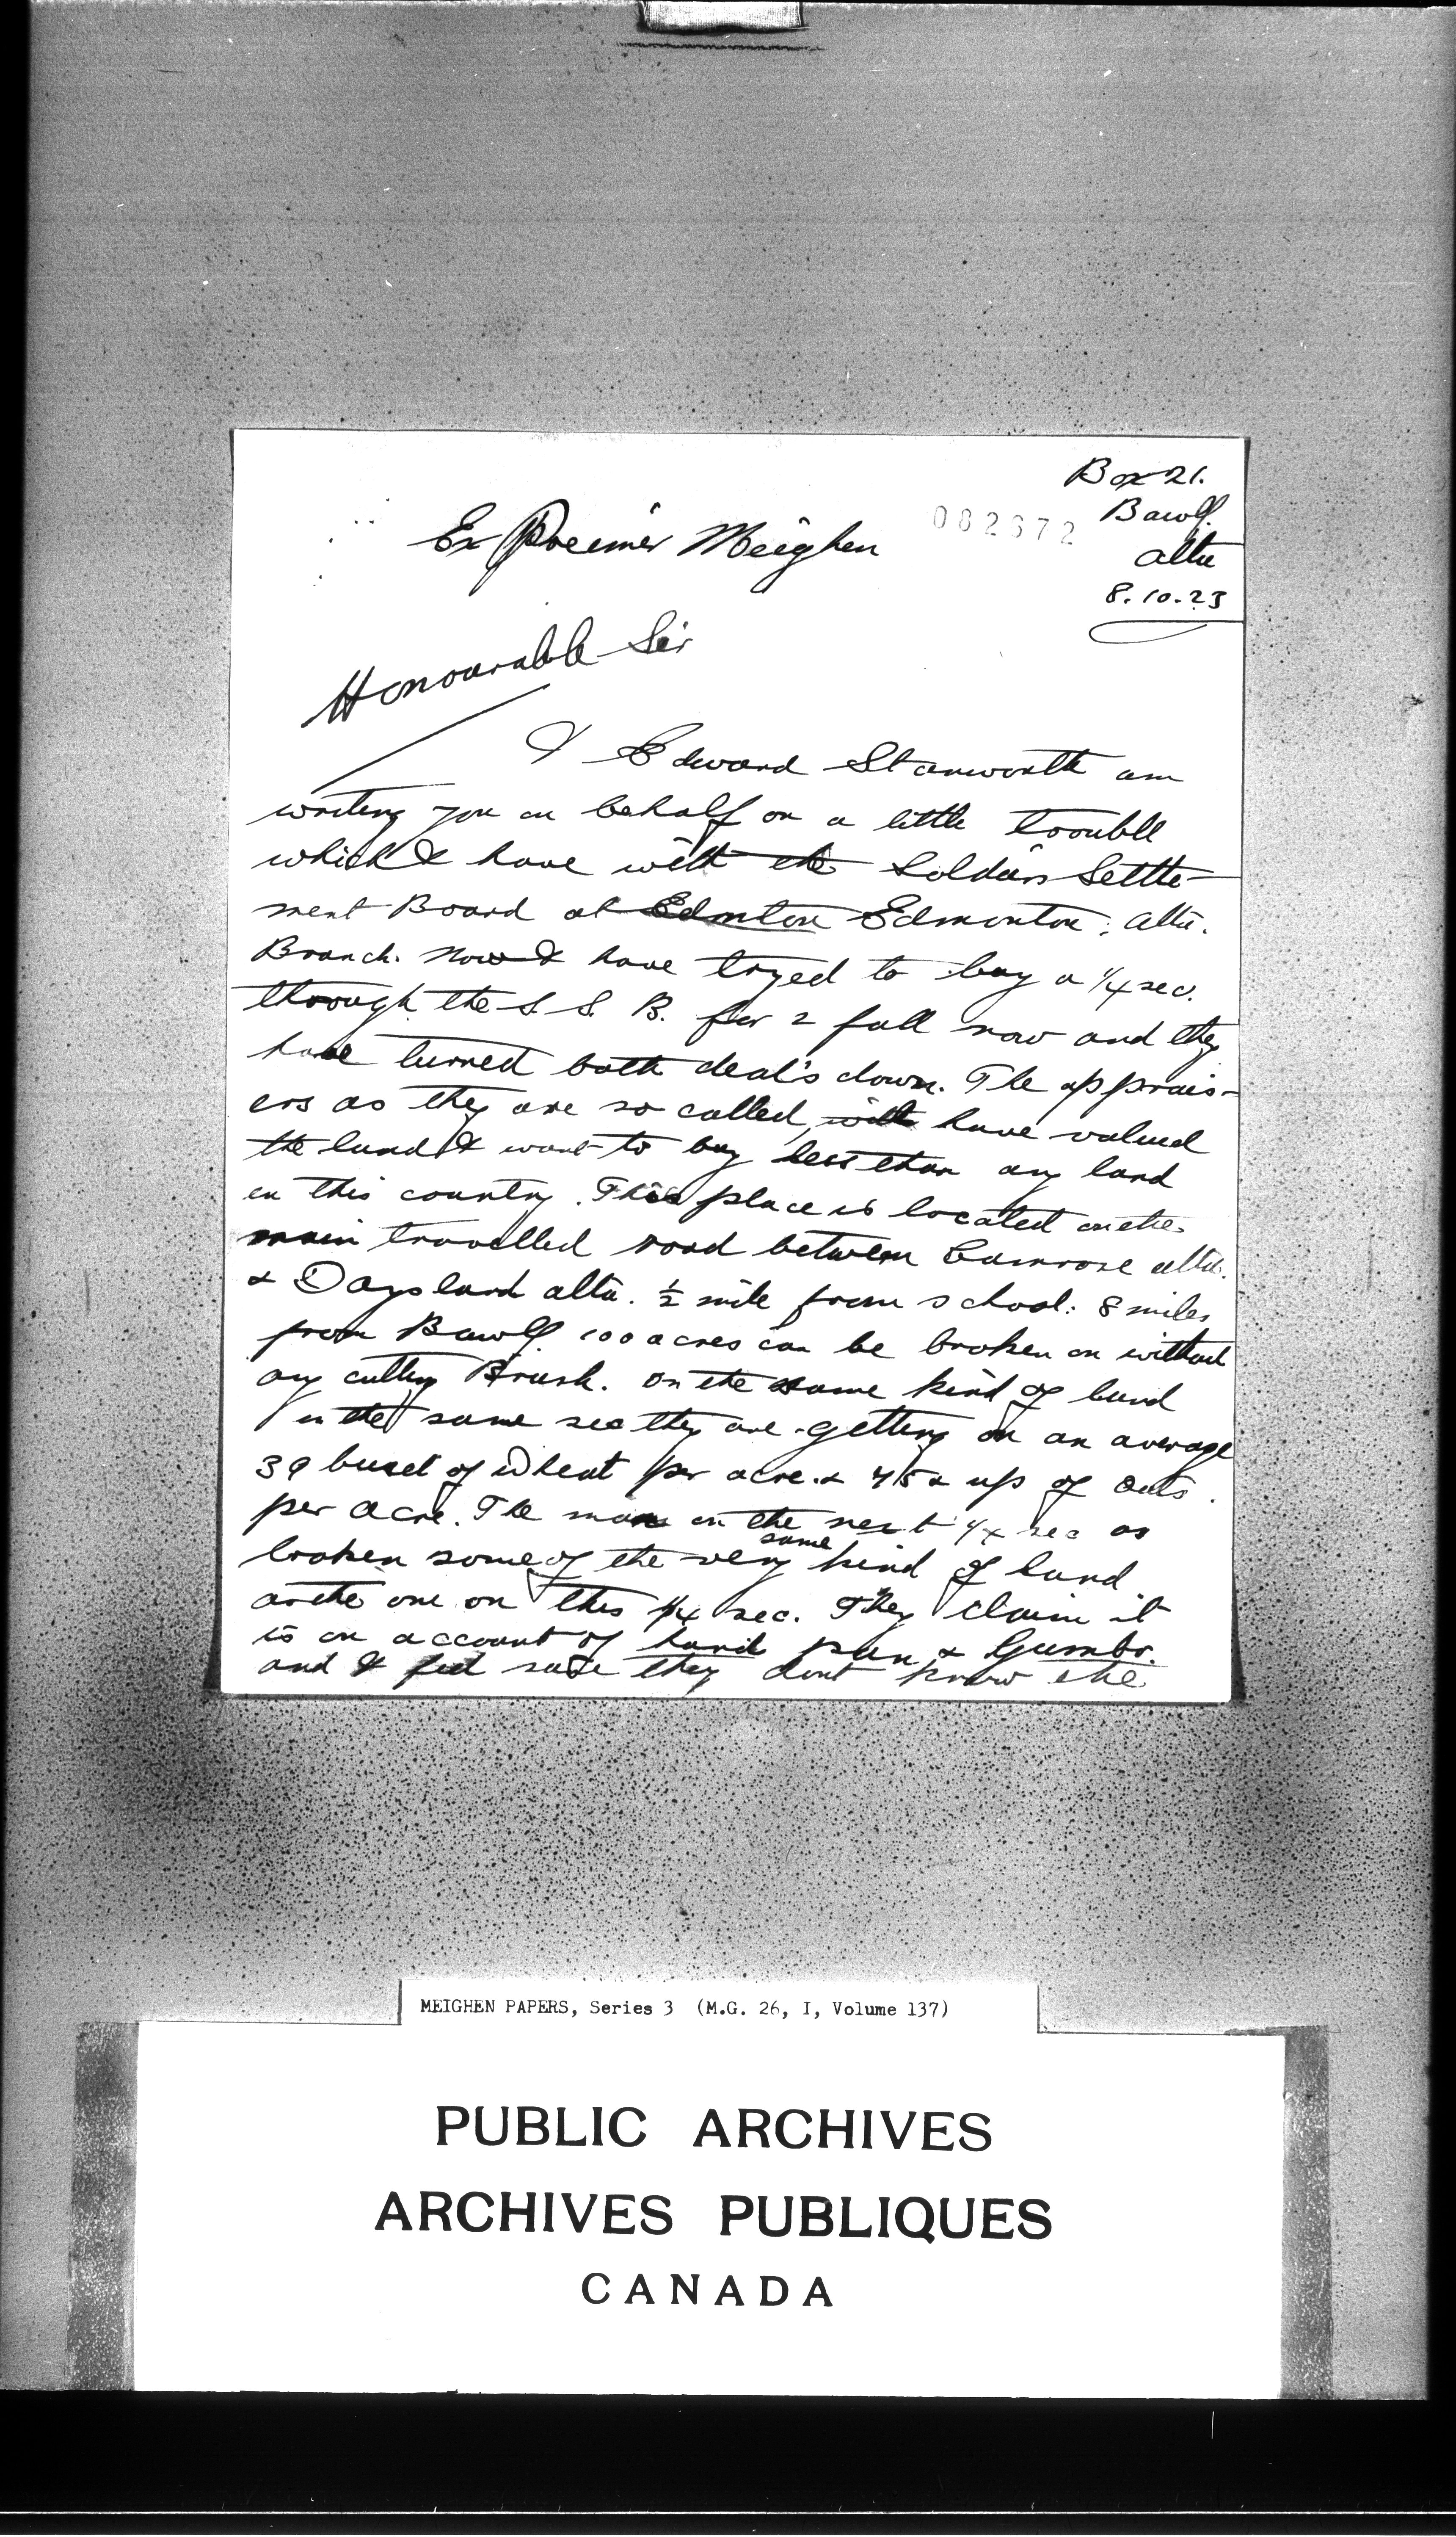 Box 21.
Bawlf.
alta
8.10.23
082672
Ex Preimier Meighen
Honourable Sir
I Edward Stanworth am
writing you on behalf on a little trouble
which I have with the Soldiers Settle-
ment Board at Edmton Edmonton. alta.
Branch. Now I have tryed to buy a 1/4 sec.
through the S. S. B. for 2 fall now and they
have turned both deal's down. The apprais-
ers as they are so called, with have valued
the land I want to buy less than any land
in this country. This place is located on the
main travelled road between Camrose alta.
& Daysland alta. 1/2 mile from school: 8 miles
from Bawlf. 100 acres can be broken on without
any cutting Brush. On the same kind of land
in the same sec they are getting on an average
39 busel of Wheat per acre. & 75 & up of Oats.
per acre. The man on the next 1/4 sec as
broken some of the very same kind of land
as the one on this 1/4 sec. They claim it
is on account of hard pan & Gumbo.
and I feel sure they dont know the
MEIGHEN PAPERS, Series 3 (M.G. 26, I, Volume 137)
PUBLIC ARCHIVES
ARCHIVES PUBLIQUES
CANADA